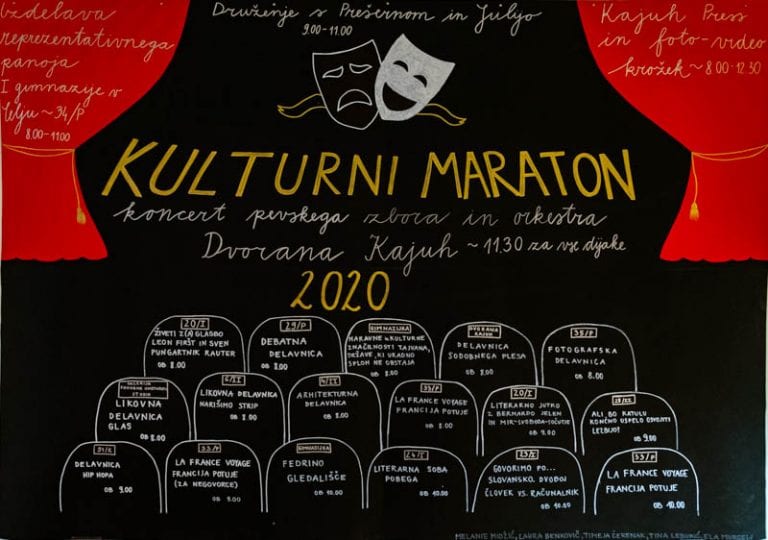 Izdelava
reprezentativnega
panoja
I gimnazije v
Celju ~ 34/P
8.00-11.00
Druženje s Prešernom in Julijo
9.00-11.00
Kajuh Press
in foto-video
krožek ~ 8.00-12.30
KULTURNI MARATON
koncert pevskega zbora in orkestra
Dvorana Kajuh ~ 11.30 za vse dijake
2020
20/I
ŽIVETI Z(A) GLASBO
LEON FIRŠT IN SVEN
PUNGARTNIK RAUTER
OB 8.00
29/P
DEBATNA
DELAVNICA
OB 8.00
GIMNAZIJKA
NARAVNE IN KULTURNE
ZNAČILNOSTI TAJVANA,
DRŽAVE, KI URADNO
SPLOH NE OBSTAJA
OB 8.00
DVORANA
KAJUH
DELAVNICA
SODOBNEGA PLESA
OB 8.00
35/P
FOTOGRAFSKA
DELAVNICA
OB 8.00
LIKOVNA
DELAVNICA
GLAS
OB 8.00
6/II
LIKOVNA DELAVNICA
NARIŠIMO STRIP
OB 8.00
4/II
ARHITEKTURNA
DELAVNICA
OB 8.00
33/P
LA FRANCE VOYAGE
FRANCIJA POTUJE
OB 8.00
20/I
LITERARNO JUTRO
Z BERNARDO JELEN
IN MIR-SVOBODA-SOČUTJE
OB 9.00
ALI BO RATULU
KONČNO USPELO OSVOJITI
LEJBIJO!
OB 9.00
DELAVNICA
HIP HOPA
OB 9.00
33/P
LA FRANCE VOYAGE
FRANCIJA POTUJE
(ZA NEGOVORCE)
OB 9.00
GIMNAZIJKA
FEDRINO
GLEDALIŠČE
OB 10.00
24/I
LITERARNA SOBA
POBEGA
OB 10.00
GOVORIMO PO...
SLOVANSKO, DVOBOJ
ČLOVEK VS. RAČUNALNIK
OB 10.00
33/P
LA FRANCE VOYAGE
FRANCIJA POTUJE
OB 10.00
MELANIE, LARA BENKOVIČ, TIMEJA ČERENAK, TINA